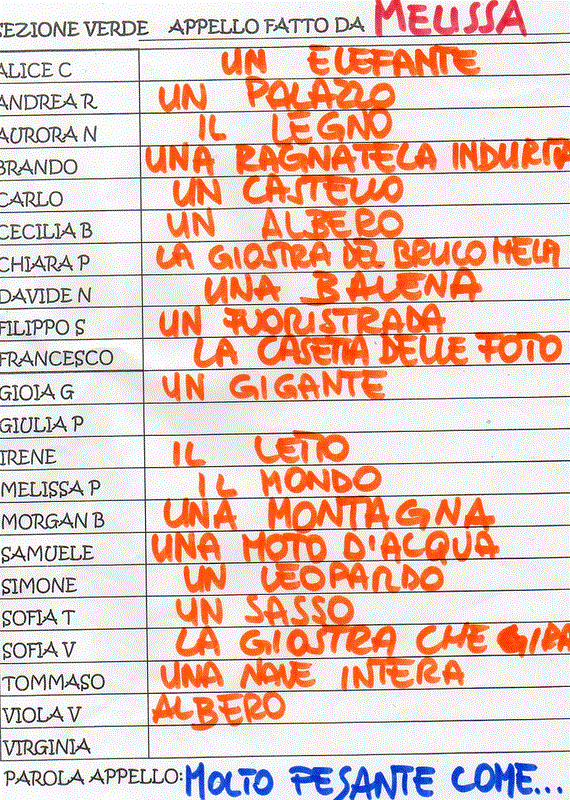 SEZIONE VERDE APPELLO FATTO DA MELISSA
ALICE C UN ELEFANTE
ANDREA R UN PALAZZO
AURORA N IL LEGNO
BRANDO UNA RAGNATELA INDURITA
CARLO UN CASTELLO
CECILIA B UN ALBERO
CHIARA P LA GIOSTRA DEL BRUCO MELA
DAVIDE N UNA BALENA
FILIPPO S UN FUORISTRADA
FRANCESCO LA CASETTA DELLE FOTO
GIOIA G UN GIGANTE
GIULIA P
IRENE IL LETTO
MELISSA P IL MONDO
MORGAN B UNA MONTAGNA
SAMUELE UNA MOTO D'ACQUA
SIMONE UN LEOPARDO
SOFIA T UN SASSO
SOFIA V LA GIOSTRA CHE GIRA
TOMMASO UNA NAVE INTERA
VIOLA V ALBERO
VIRGINIA
PAROLA APPELLO: MOLTO PESANTE COME...